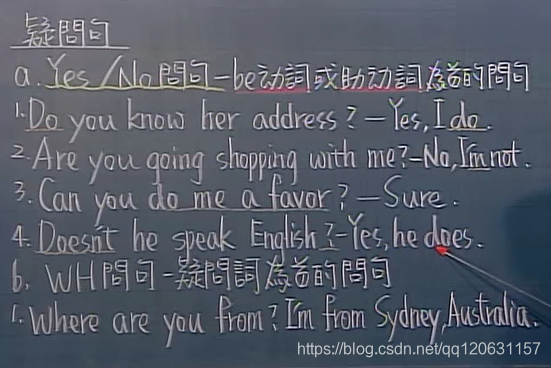 疑問句
a. Yes/No問句-be动詞或助动詞為首的問句
1. Do you know her address? - Yes, I do.
2. Are you going shopping with me? - No, I'm not.
3. Can you do me a favor? - Sure.
4. Doesn't he speak English? - Yes, he does.
b. WH問句-疑問詞為首的問句
1. Where are you from? I'm from Sydney, Australia.
https://blog.csdn.net/qq120631157